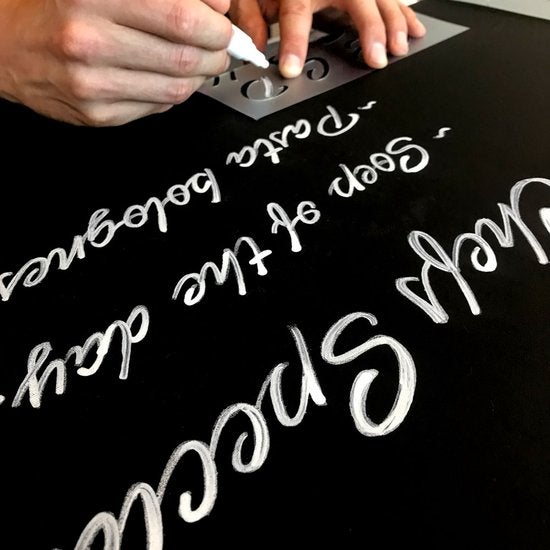 Chefs Special
~ Soep of the day
~ Pasta bolognes